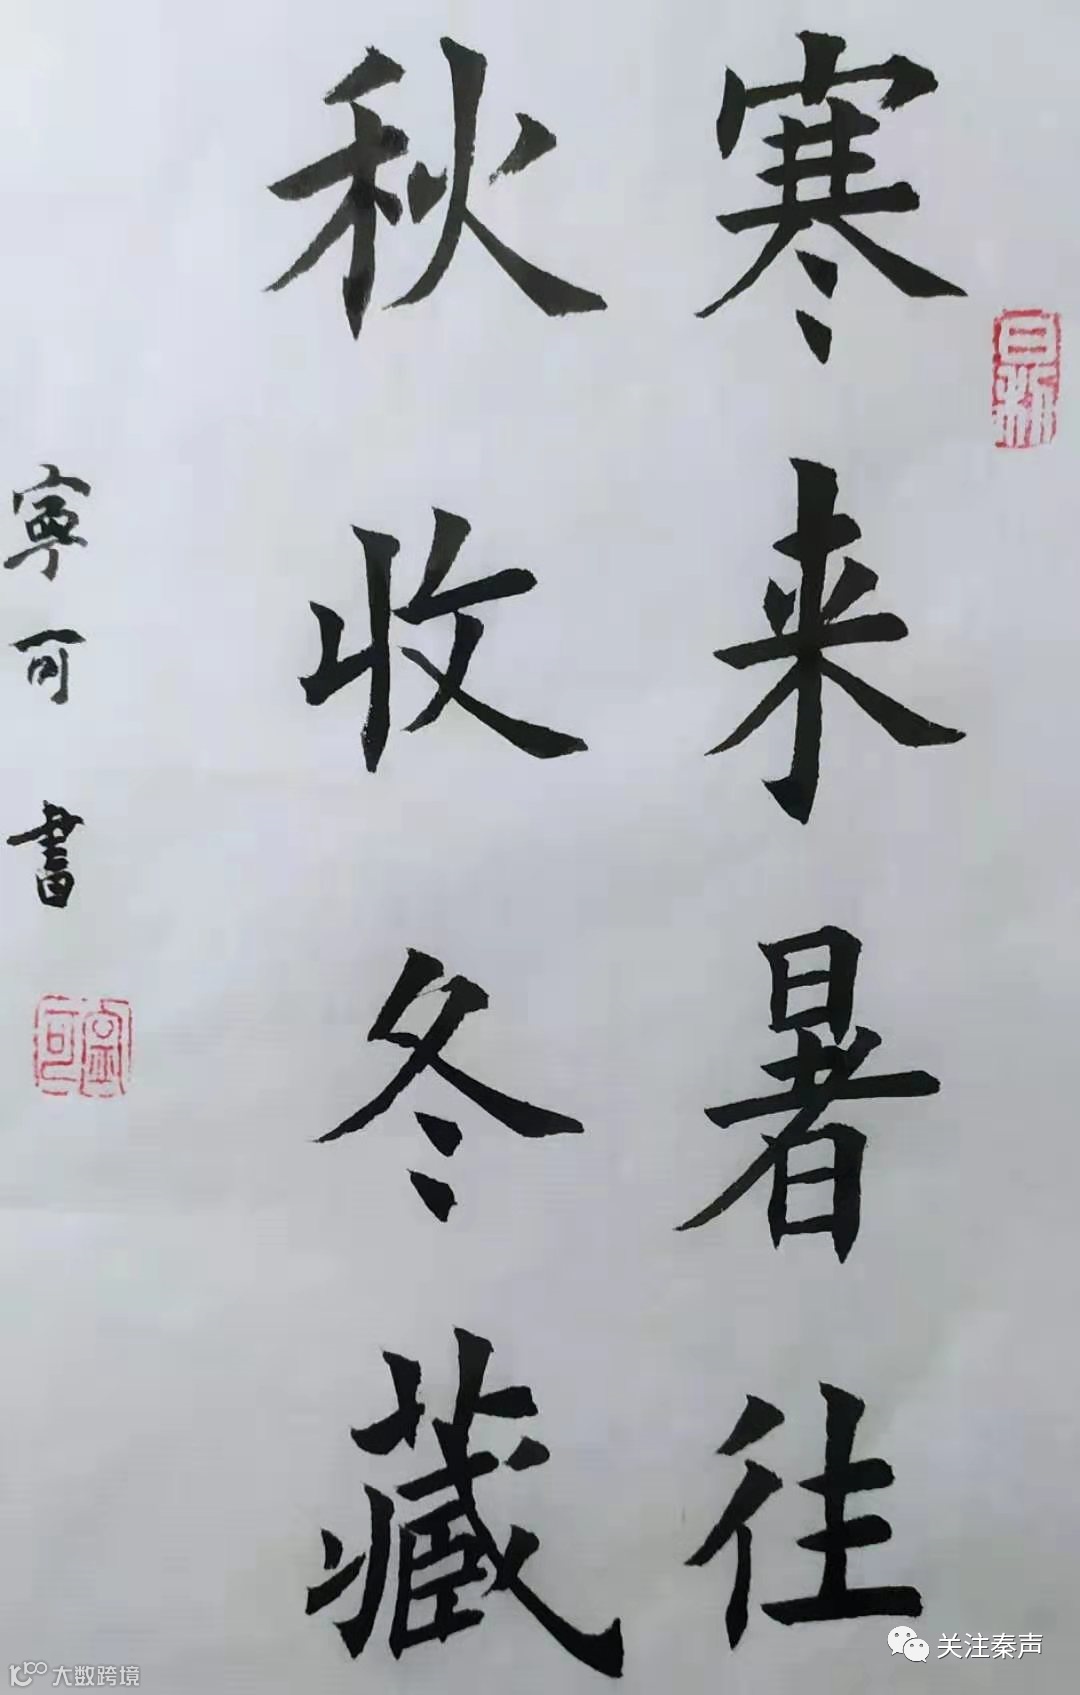 寒来暑往
秋收冬藏
寜可書
关注秦声
大数跨境